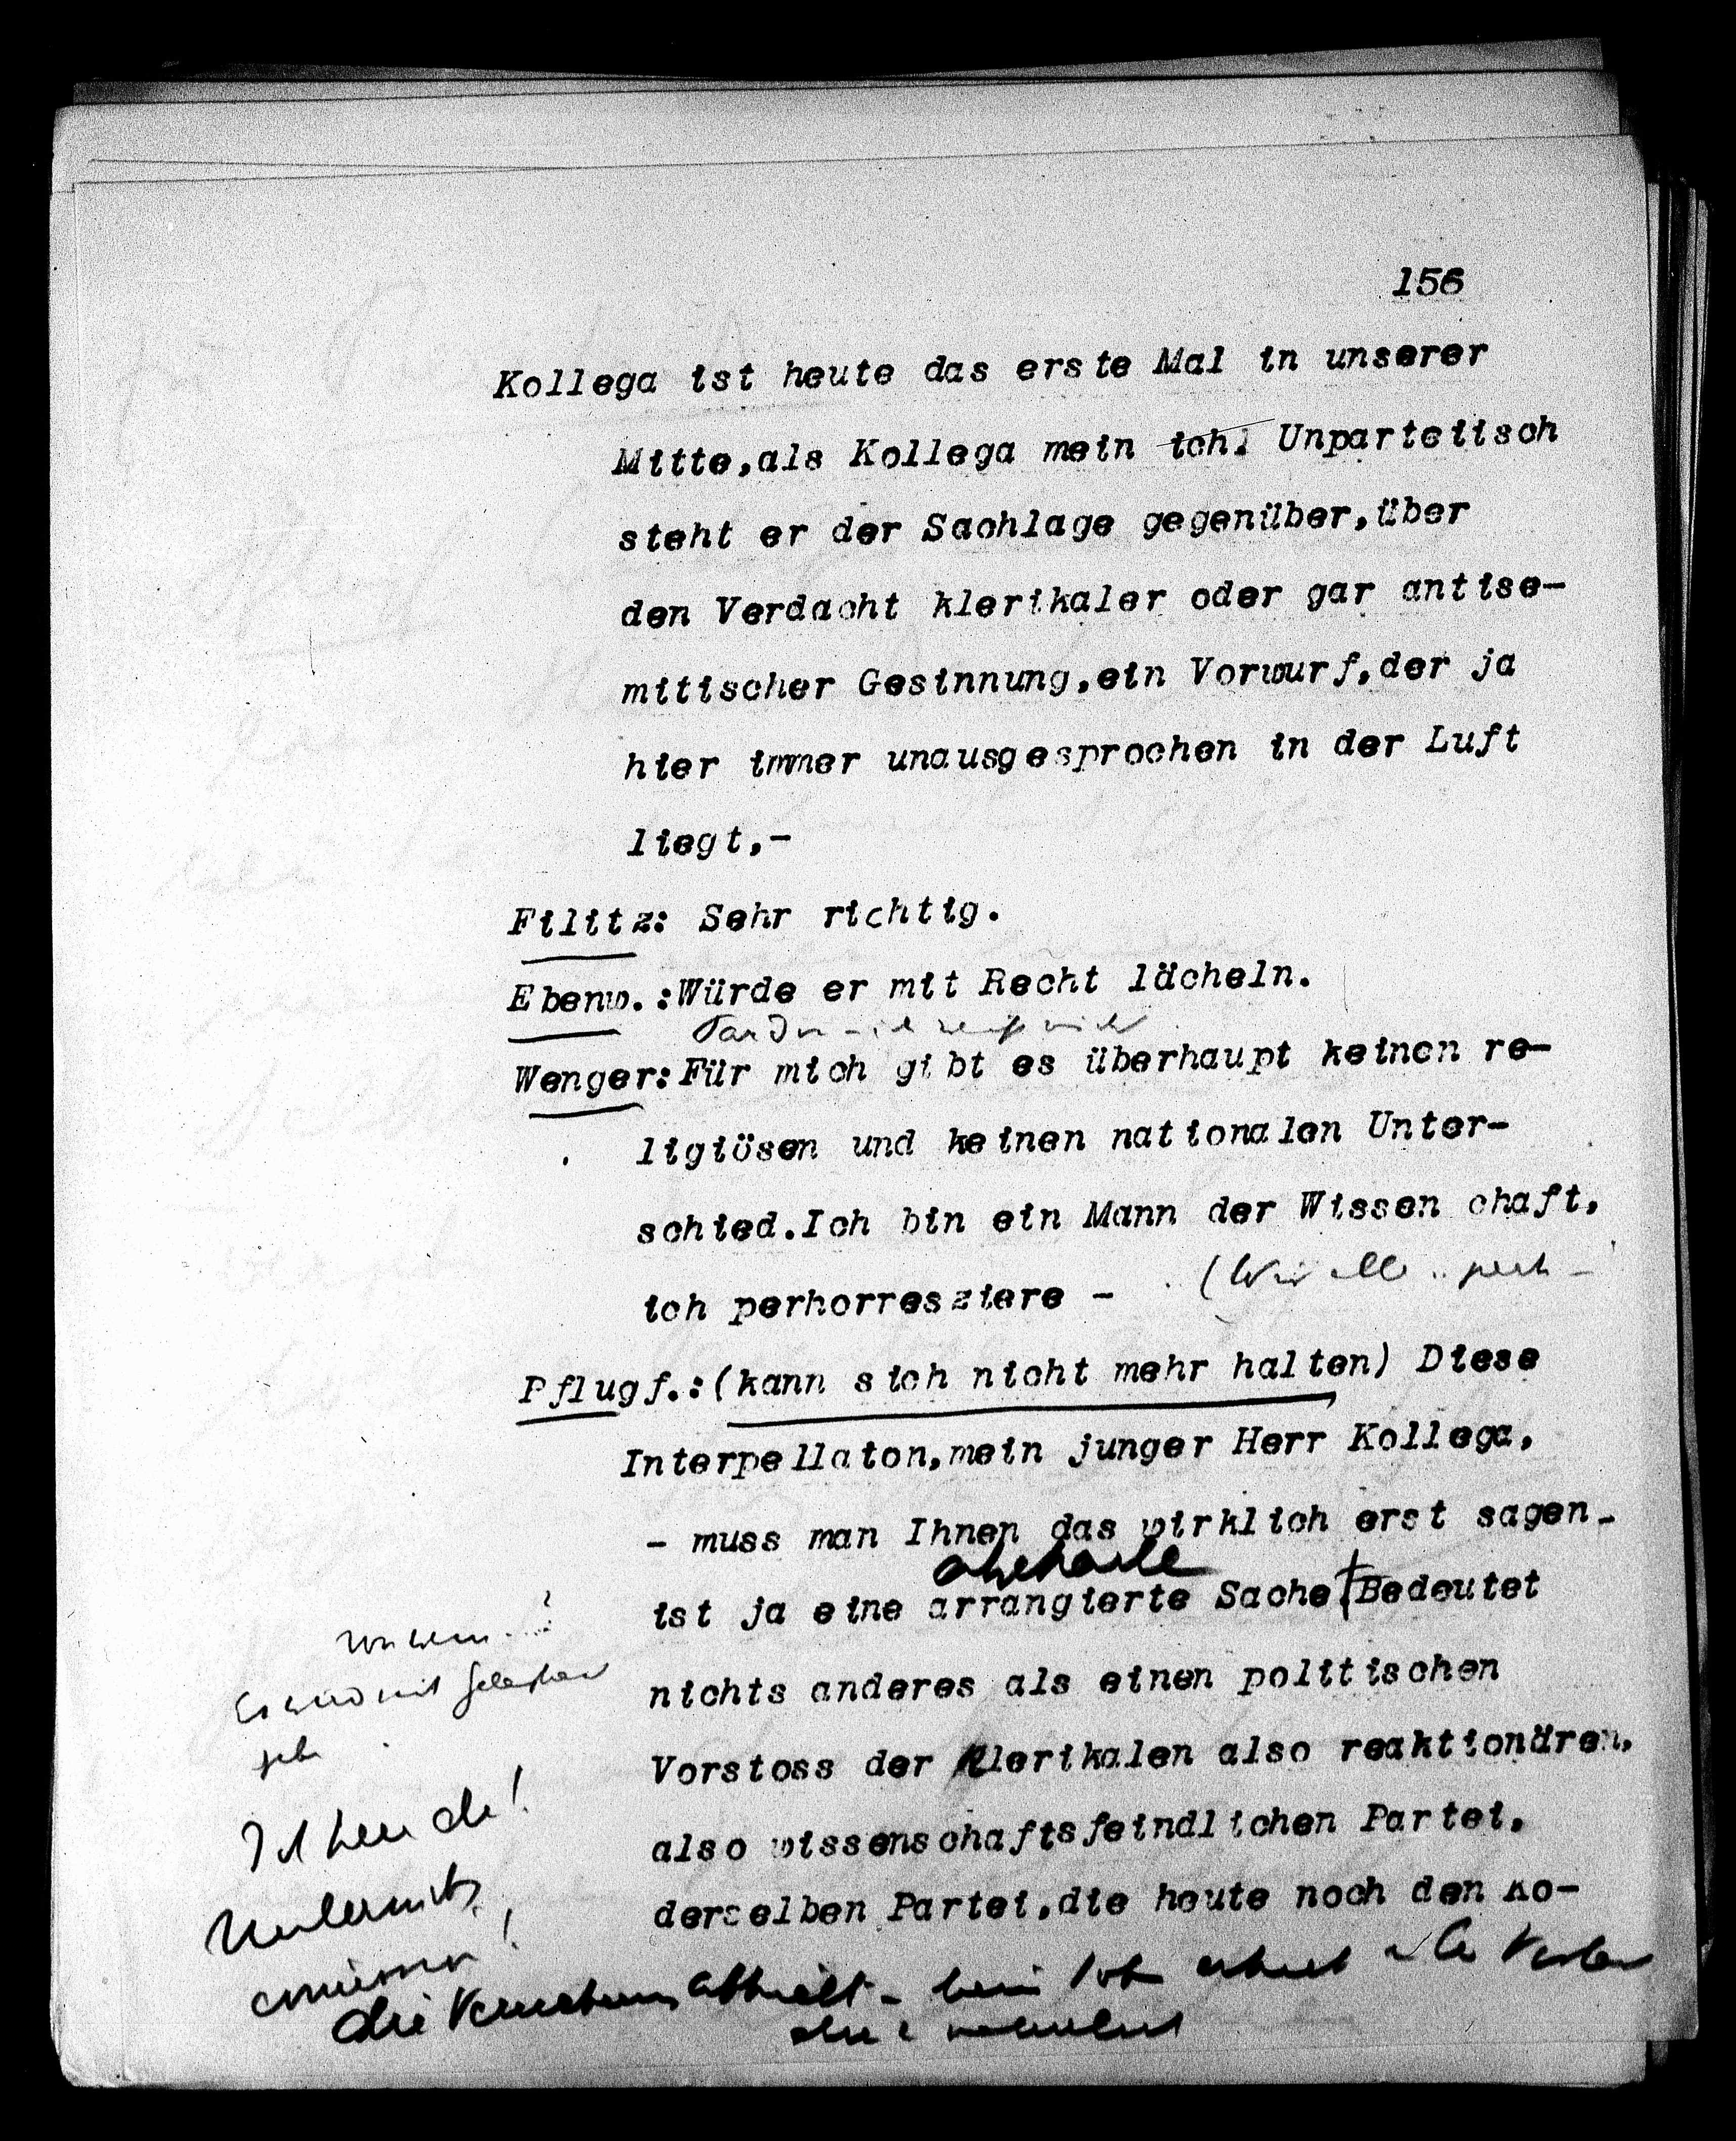 156
Kollega ist heute das erste Mal in unserer
Mitte,als Kollega mein ich! Unparteiisch
steht er der Sachlage gegenüber,über
den Verdacht klerikaler oder gar antise-
mitischer Gesinnung,ein Vorwurf,der ja
hier immer unausgesprochen in der Luft
liegt,-
Filitz: Sehr richtig.
Ebenw.:Würde er mit Recht lächeln.
Wenger:Für mich gibt es überhaupt keinen re-
ligiösen und keinen nationalen Unter-
schied.Ich bin ein Mann der Wissen chaft,
(Wir alle
ich perhorresziere -
Pflugf.:(kann sich nicht mehr halten) Diese
Interpellaton,mein junger Herr Kollega,
- muss man Ihnen das wirklich erst sagen-
abgekartete
ist ja eine arrangierte Sache Bedeutet
nichts anderes als einen politischen
Vorstoss der Klerikalen also reaktionären,
also wissenschaftsfeindlichen Partei,
derselben Partei,die heute noch den Ko-
von wem